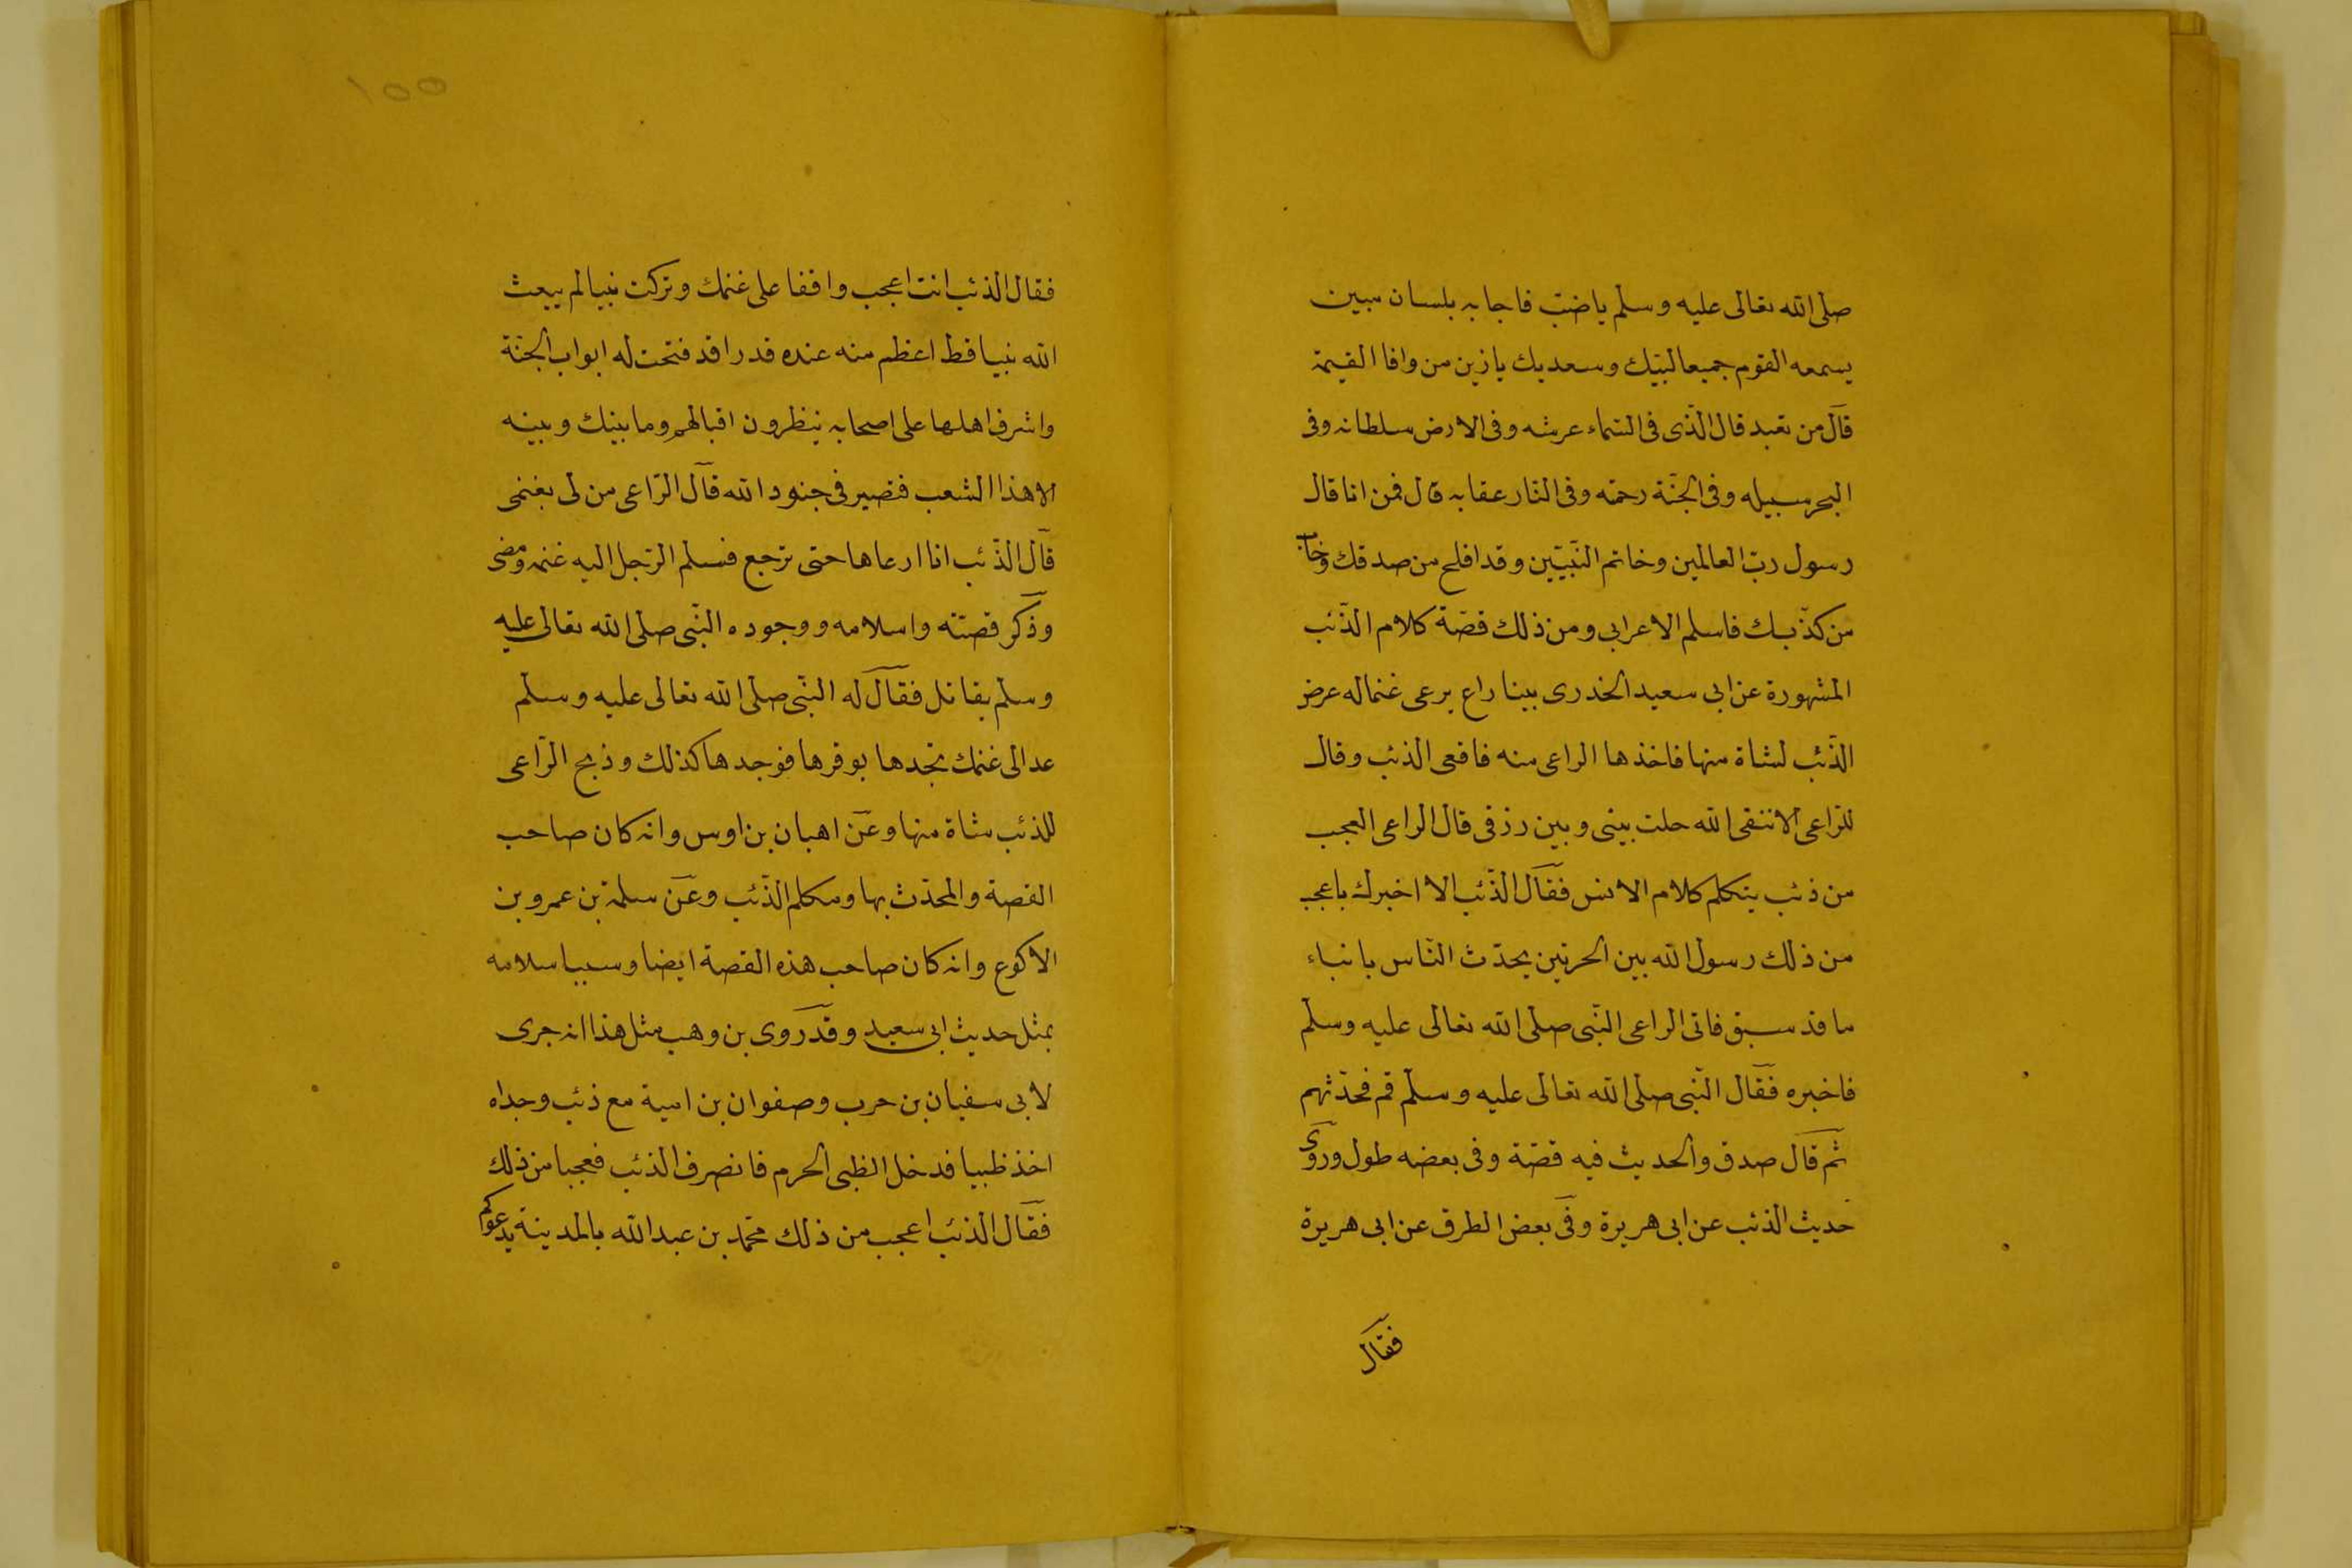 صلى الله تعالى عليه وسلم يا ضبّ فاجابه بلسان مبين
يسمعه القوم جميعا لبّيك وسعديك يا زين من وافا القيمة
قال من تعبد قال الّذى فى السّماء عرشه وفى الارض سلطانه وفى
البحر سبيله وفى الجنّة رحمته وفى النّار عقابه قال فمن انا قال
رسول ربّ العالمين وخاتم النّبيّين وقد افلح من صدقك وخاب
من كذّبك فاسلم الاعرابى ومن ذلك قصّة كلام الذّئب
المشهورة عن ابى سعيد الخدرى بينا راع يرعى غنما له عرض
الذّئب لشاة منها فاخذها الراعى منه فاقعى الذئب وقال
للرّاعى الا تتقى الله حلت بينى وبين رزقى قال الراعى العجب
من ذئب يتكلم كلام الانس فقال الذّئب الا اخبرك باعجب
من ذلك رسول الله بين الحرتين يحدّث النّاس بانباء
ما قد سبق فاتى الراعى النّبى صلى الله تعالى عليه وسلّم
فاخبره فقال النّبى صلى الله تعالى عليه وسلّم قم فحدّثهم
ثم قال صدق والحديث فيه قصّة وفى بعضه طول وروى
حديث الذئب عن ابى هريرة وفى بعض الطرق عن ابى هريرة
فقال
١٥٥
فقال الذئب انت اعجب واقفا على غنمك وتركت نبيا لم يبعث
الله نبيا قط اعظم منه عنده قدرا قد فتحت له ابواب الجنّة
واشرف اهلها على اصحابه ينظرون اقبالهم وما بينك وبينه
الا هذا الشعب فتصير فى جنود الله قال الرّاعى من لى بغنمى
قال الذّئب انا ارعاها حتى ترجع فسلم الرّجل اليه غنمه ومضى
وذكر قصته واسلامه ووجوده النّبى صلى الله تعالى عليه
وسلّم يقاتل فقال له النّبى صلى الله تعالى عليه وسلّم
عد الى غنمك تجدها بوفرها فوجدها كذلك وذبح الرّاعى
للذئب شاة منها وعن اهبان بن اوس وانه كان صاحب
القصة والمحدّث بها ومكلم الذّئب وعن سلمة بن عمرو بن
الاكوع وانه كان صاحب هذه القصة ايضا وسبب اسلامه
بمثل حديث ابى سعيد وقد روى بن وهب مثل هذا انه جرى
لابى سفيان بن حرب وصفوان بن امية مع ذئب وجداه
اخذ ظبيا فدخل الظبى الحرم فانصرف الذئب فعجبا من ذلك
فقال الذئب اعجب من ذلك محمّد بن عبد الله بالمدينة يدعوكم